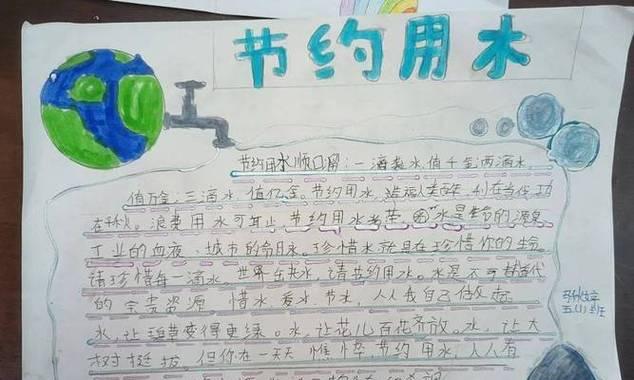 节约用水
节约用水顺口溜:一滴水值千金两滴水
值万金,三滴水,值亿金。节约用水,造福人类,利在当代,功
在千秋。浪费用水可耻 节约用水光荣。水是生命的源泉
工业的血液、城市的命脉。珍惜水就是在珍惜你的生命
请珍惜每一滴水。世界在共水,请节约用水。水是不可替代
的宝贵资源 惜水爱水节水,人人我自己做起
水,让草变得更绿。水,让花儿百花齐放。水,让大
树挺拔,但你在一天天憔悴,节约用水,人人有
五(1)班